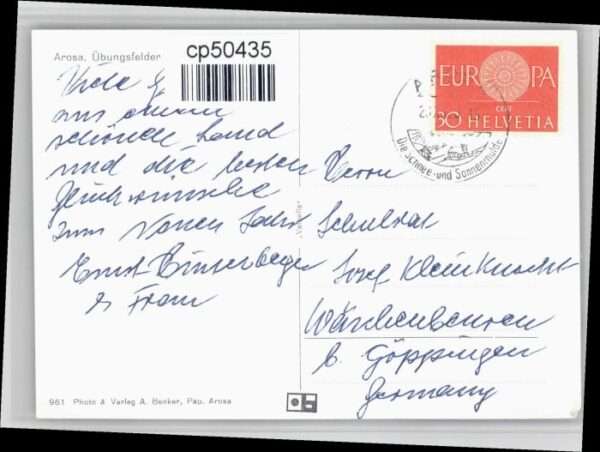 Arosa, Übungsfelder
cp50435
Viele
aus einem
schönen Land
und die besten
Glückwünsche
zum Neuen Jahr
Ernst
& Frau
Herrn
Schulrat
Josef Kleinknecht
Wäschenbeuren
b. Göppingen
Germany
EUROPA
CEPT
30 HELVETIA
Die Schnee- und Sonnenmulde
961 Photo & Verlag A. Benker, Pap. Arosa